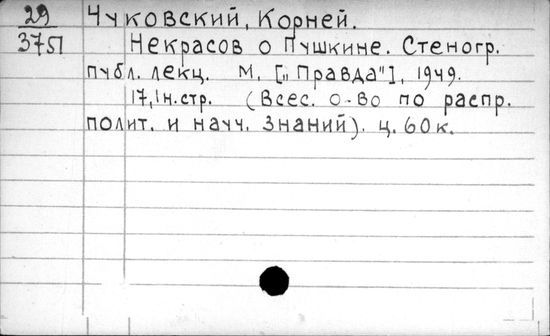 29 Чуковский, Корней.
375П Некрасов о Пушкине. Стеногр.
публ. лекц. М. [„Правда"], 1949.
17,1н.стр. (Всес. о-во по распр.
полит. и научн. знаний). ц. 60к.